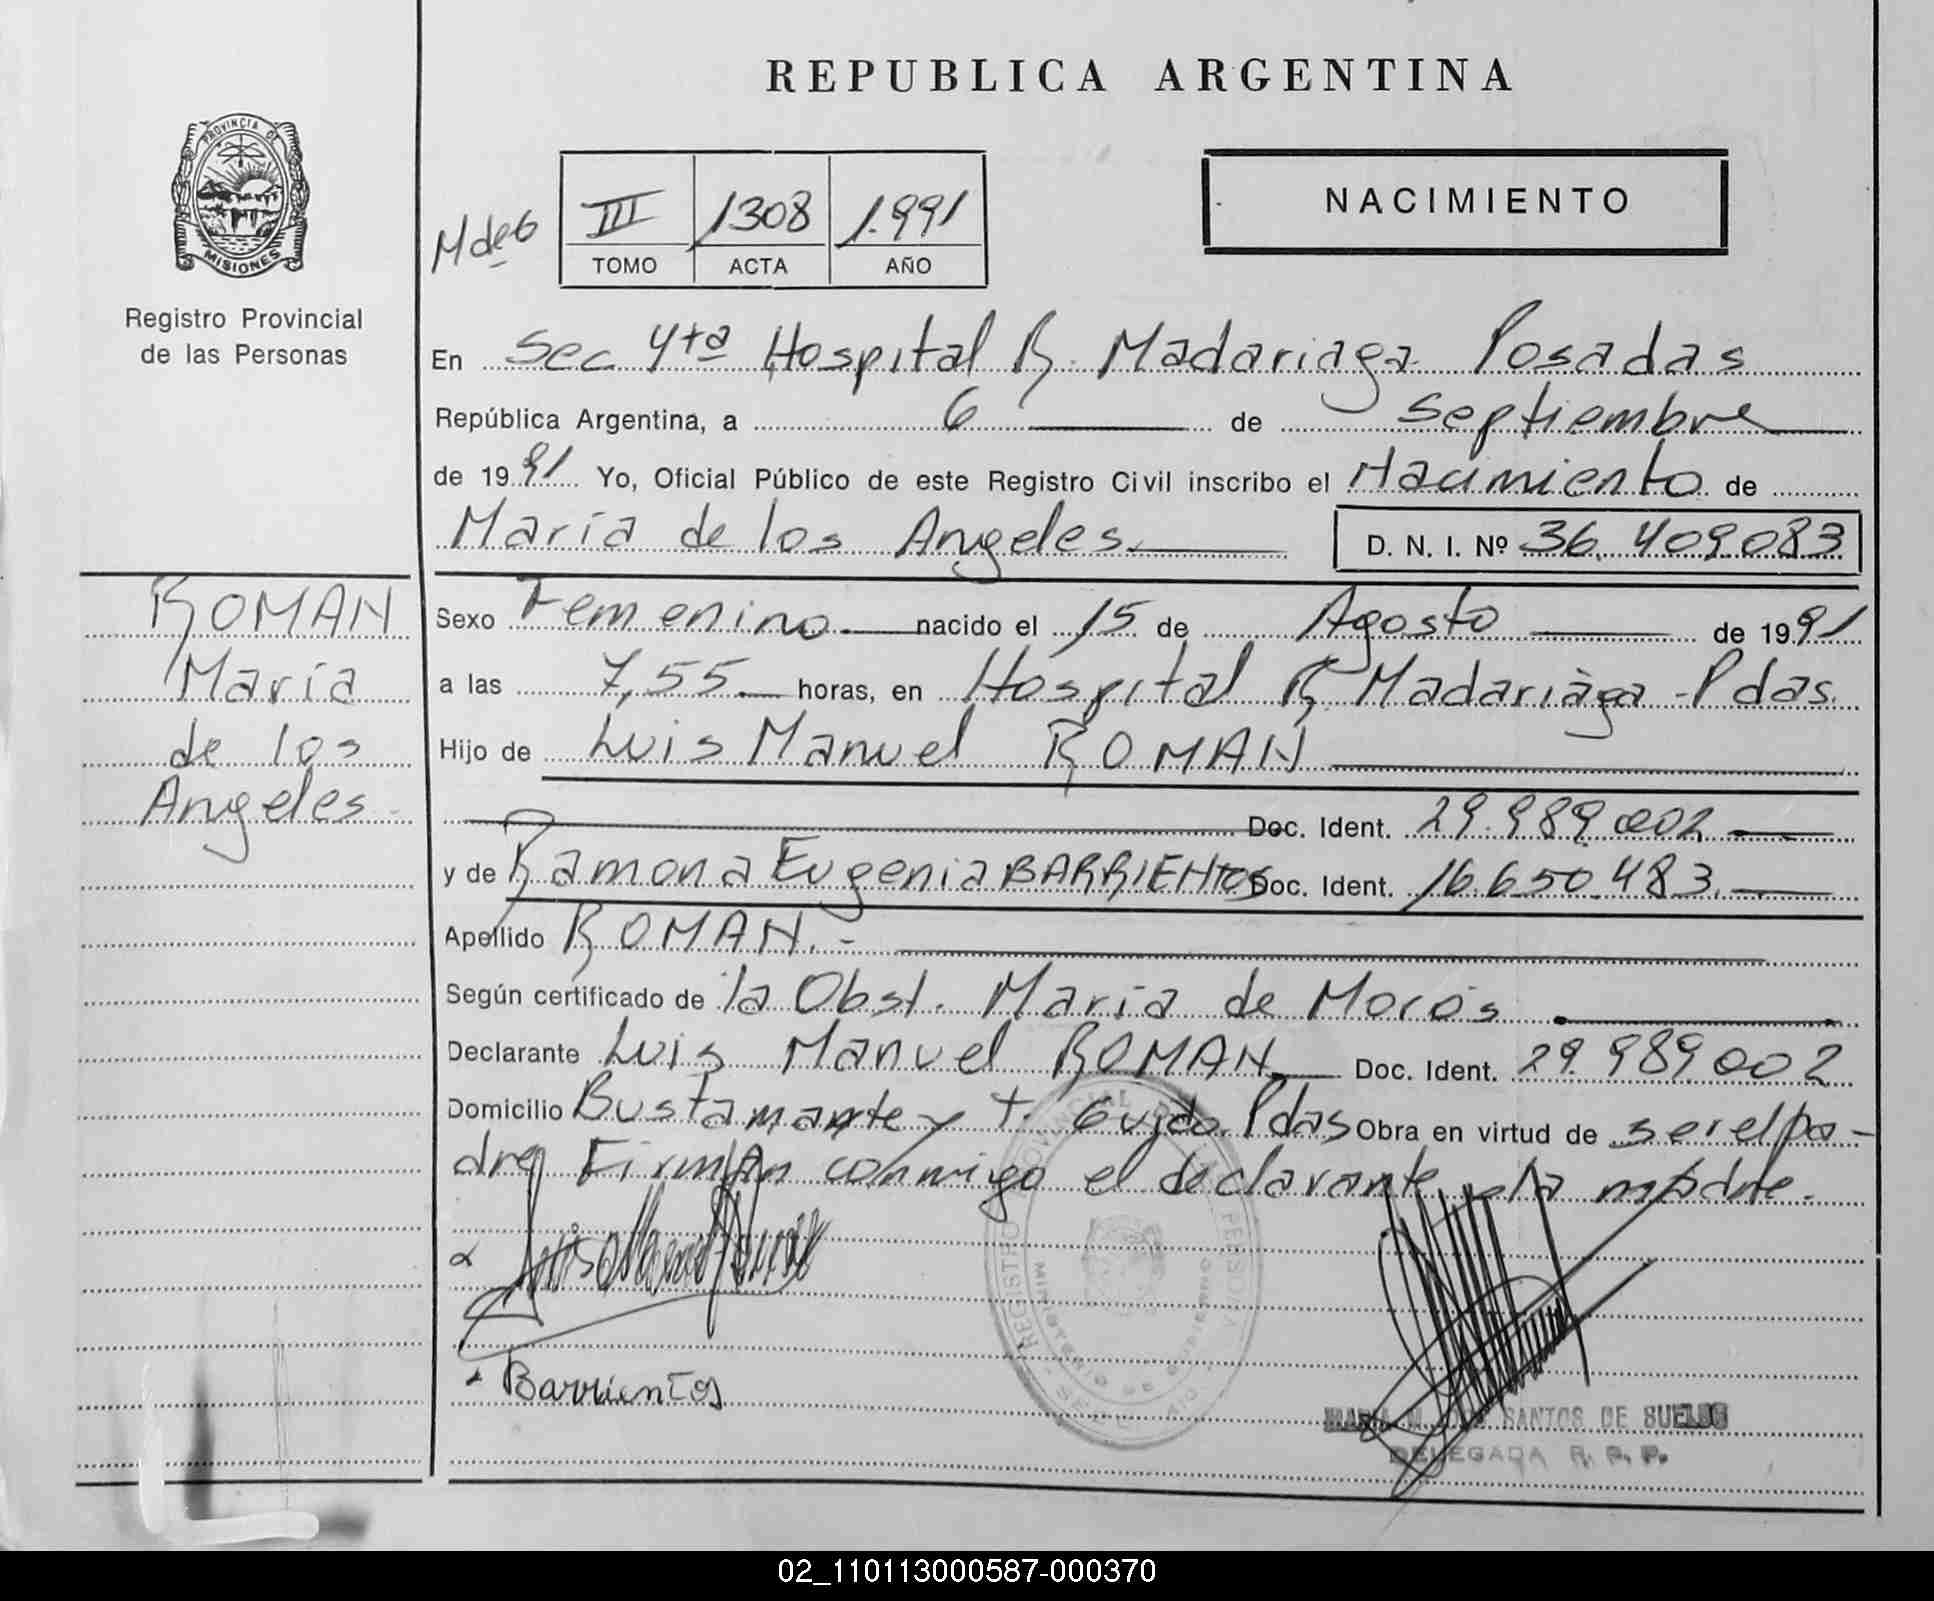 REPUBLICA ARGENTINA
PROVINCIA DE MISIONES
Registro Provincial
de las Personas
NACIMIENTO
M de 6
III 1308 1.991
TOMO ACTA AÑO
En Sec 4ta Hospital R. Madariaga Posadas
República Argentina, a 6 de Septiembre
de 1991 Yo, Oficial Público de este Registro Civil inscribo el Nacimiento de
María de los Angeles. D. N. I. Nº 36.409.083
ROMAN
María
de los
Angeles
Sexo Femenino nacido el 15 de Agosto de 1991
a las 7,55 horas, en Hospital R Madariaga - Pdas.
Hijo de Luis Manuel ROMAN
Doc. Ident. 29.989.002
y de Ramona Eugenia BARRIENTOS Doc. Ident. 16.650.483.
Apellido ROMAN. -
Según certificado de la Obst. María de Moros
Declarante Luis Manuel ROMAN Doc. Ident. 29.989.002
Domicilio Bustamante y T. Guido Pdas Obra en virtud de ser el pa-
dre Firman conmigo el declarante y la madre.
REGISTRO PROVINCIAL DE LAS PERSONAS
MINISTERIO DE GOBIERNO
Barrientos
SANTOS DE SUELDO
DELEGADA R. P. P.
02_110113000587-000370